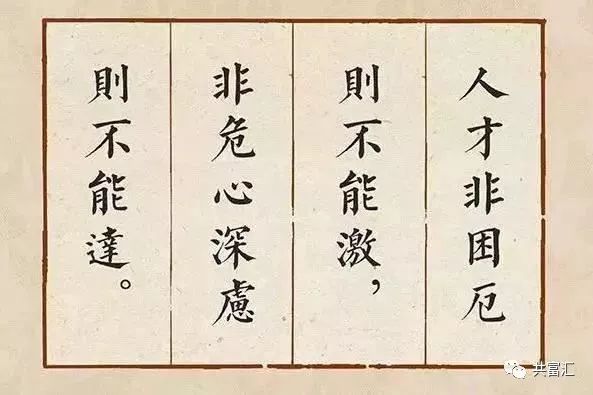 人才非困厄
則不能激，
非危心深慮
則不能達。
共富汇